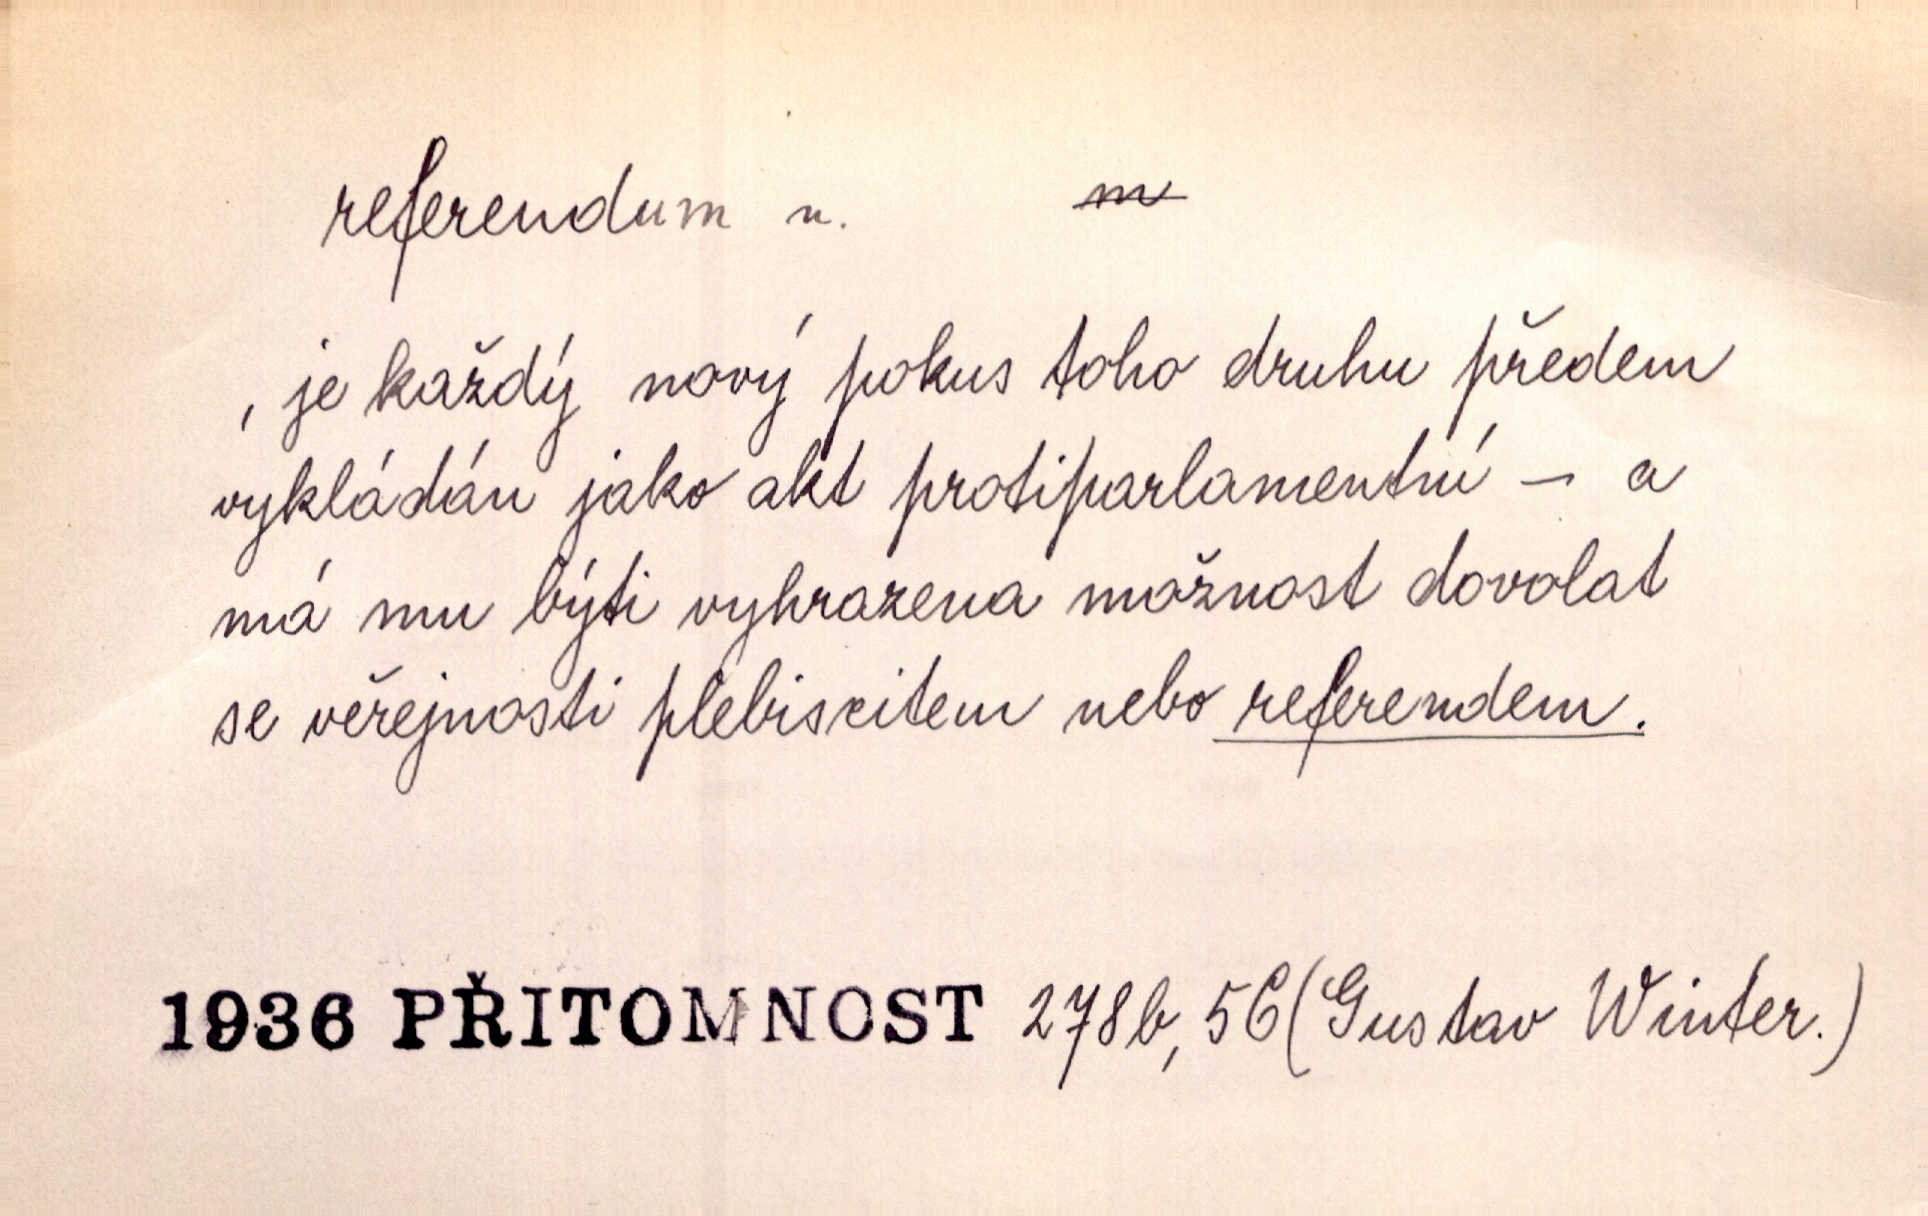 referendum n. m
, je každý nový pokus toho druhu předem
vykládán jako akt protiparlamentní – a
má mu býti vyhrazena možnost dovolat
se veřejnosti plebiscitem nebo referendem.
1936 PŘITOMNOST 278b, 56 (Gustav Winter.)